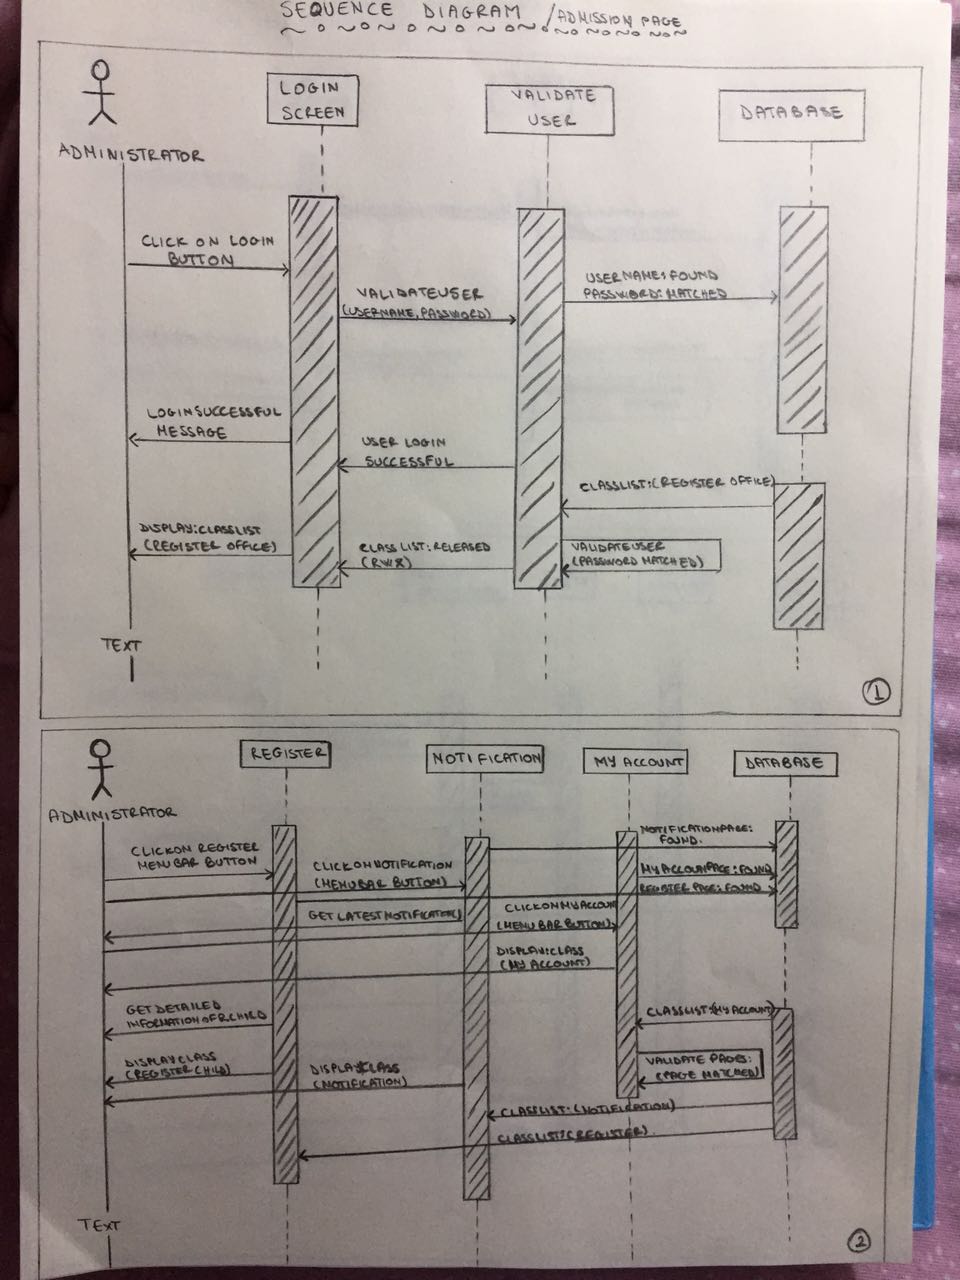 SEQUENCE DIAGRAM / ADMISSION PAGE
LOGIN
SCREEN
VALIDATE
USER
DATABASE
ADMINISTRATOR
CLICK ON LOGIN
BUTTON
VALIDATEUSER
(USERNAME, PASSWORD)
USERNAME: FOUND
PASSWORD: MATCHED
LOGINSUCCESSFUL
MESSAGE
USER LOGIN
SUCCESSFUL
CLASSLIST: (REGISTER OFFICE)
DISPLAY: CLASSLIST
(REGISTER OFFICE)
CLASS LIST: RELEASED
VALIDATEUSER
(PASSWORD MATCHED)
TEXT
1
REGISTER
NOTIFICATION
MY ACCOUNT
DATABASE
ADMINISTRATOR
CLICK ON REGISTER
MENU BAR BUTTON
CLICK ON NOTIFICATION
(MENU BAR BUTTON)
NOTIFICATION PAGE:
FOUND.
MY ACCOUNT PAGE: FOUND
REGISTER PAGE: FOUND
GET LATEST
CLICK ON MY ACCOUNT
(MENU BAR BUTTON)
DISPLAY: CLASS
(MY ACCOUNT)
GET DETAILED
INFORMATION OF CHILD
CLASSLIST: (MY ACCOUNT)
DISPLAY CLASS
(REGISTER CHILD)
DISPLAY: CLASS
(NOTIFICATION)
VALIDATE PAGES:
(PAGE MATCHED)
CLASSLIST: (NOTIFICATION)
CLASSLIST: (REGISTER)
TEXT
2